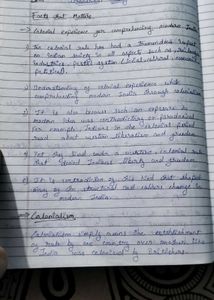 Facts that Matter
→ Colonial experience for comprehending modern India
The colonial rule has had a tremendous impact
on Indian society in all aspects such as political
industrial system (cultural
political).
Understanding of colonial experience while
comprehending modern India through colonialism
It is also because such an exposure to
modern ideas was contradicting or paradoxical
for example Indians in the colonial period
read about western liberalism and freedom
Yet they lived under a western colonial rule
that denied Indians liberty and freedom
It is contradiction of this kind that shaped
many of the structural and culture change in
modern India.
→ Colonialism
Colonialism simply means the establishment
of rule by one country over another like
India was colonised by Britishers.